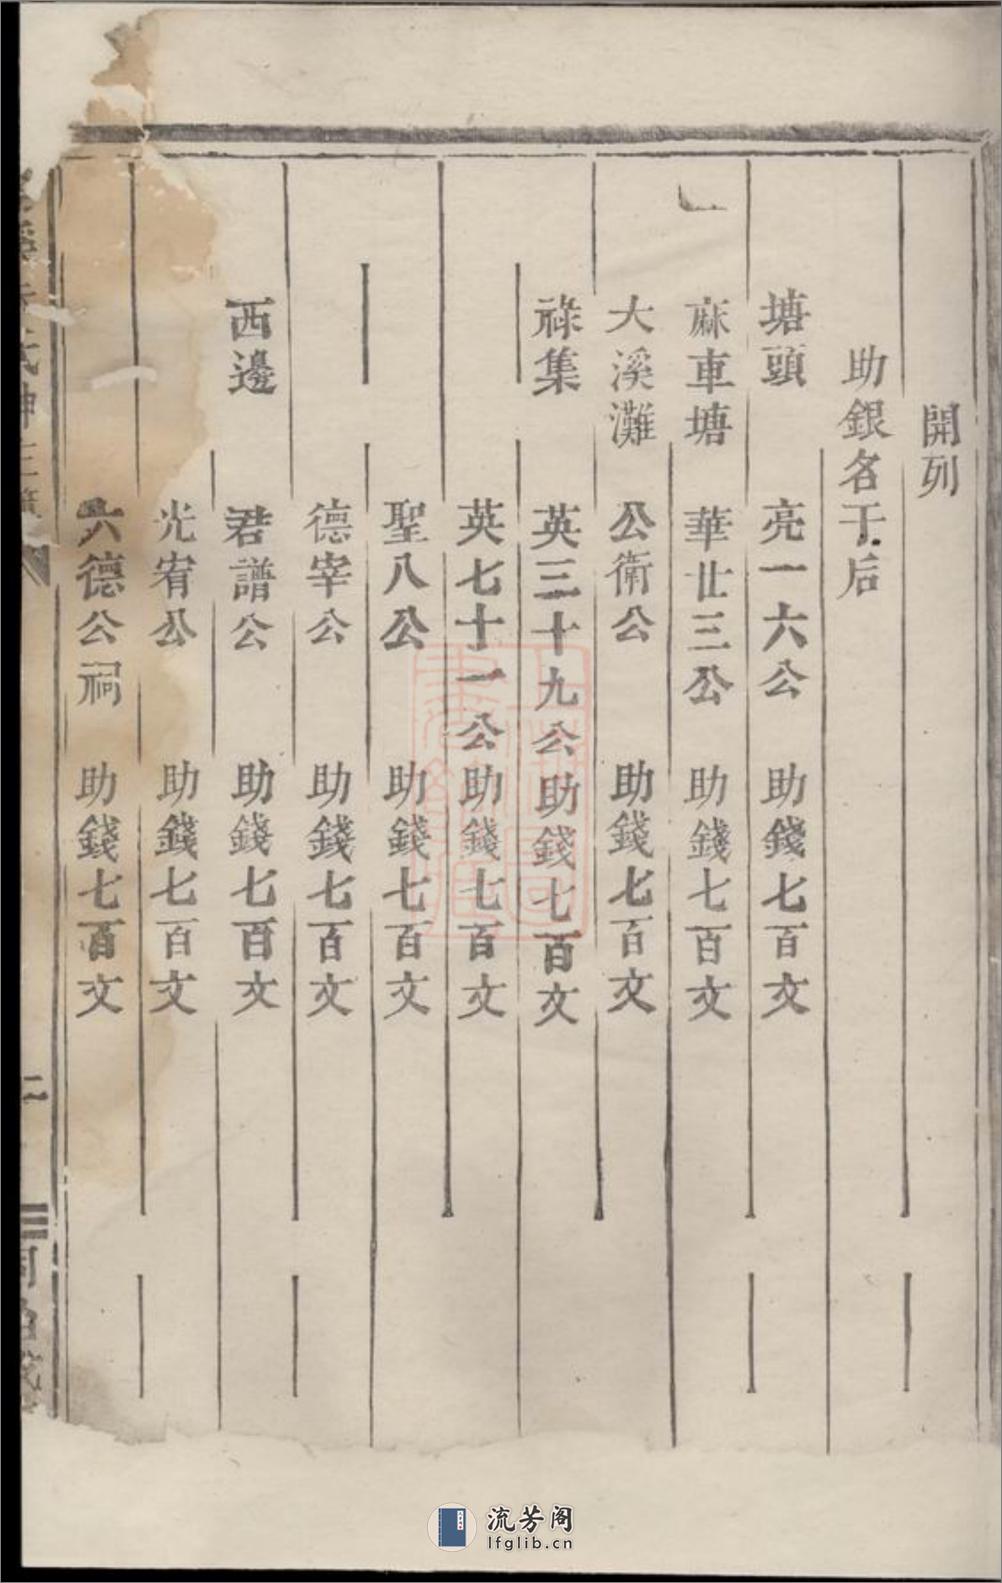 開列
助銀名于后
塘頭 亮一六公 助錢七百文
麻車塘 華廿三公 助錢七百文
大溪灘 公衛公 助錢七百文
祿集 英三十九公 助錢七百文
英七十一公 助錢七百文
聖八公 助錢七百文
德宰公 助錢七百文
西邊 君譜公 助錢七百文
光宥公 助錢七百文
六德公祠 助錢七百文
二
流芳阁
lfglib.cn